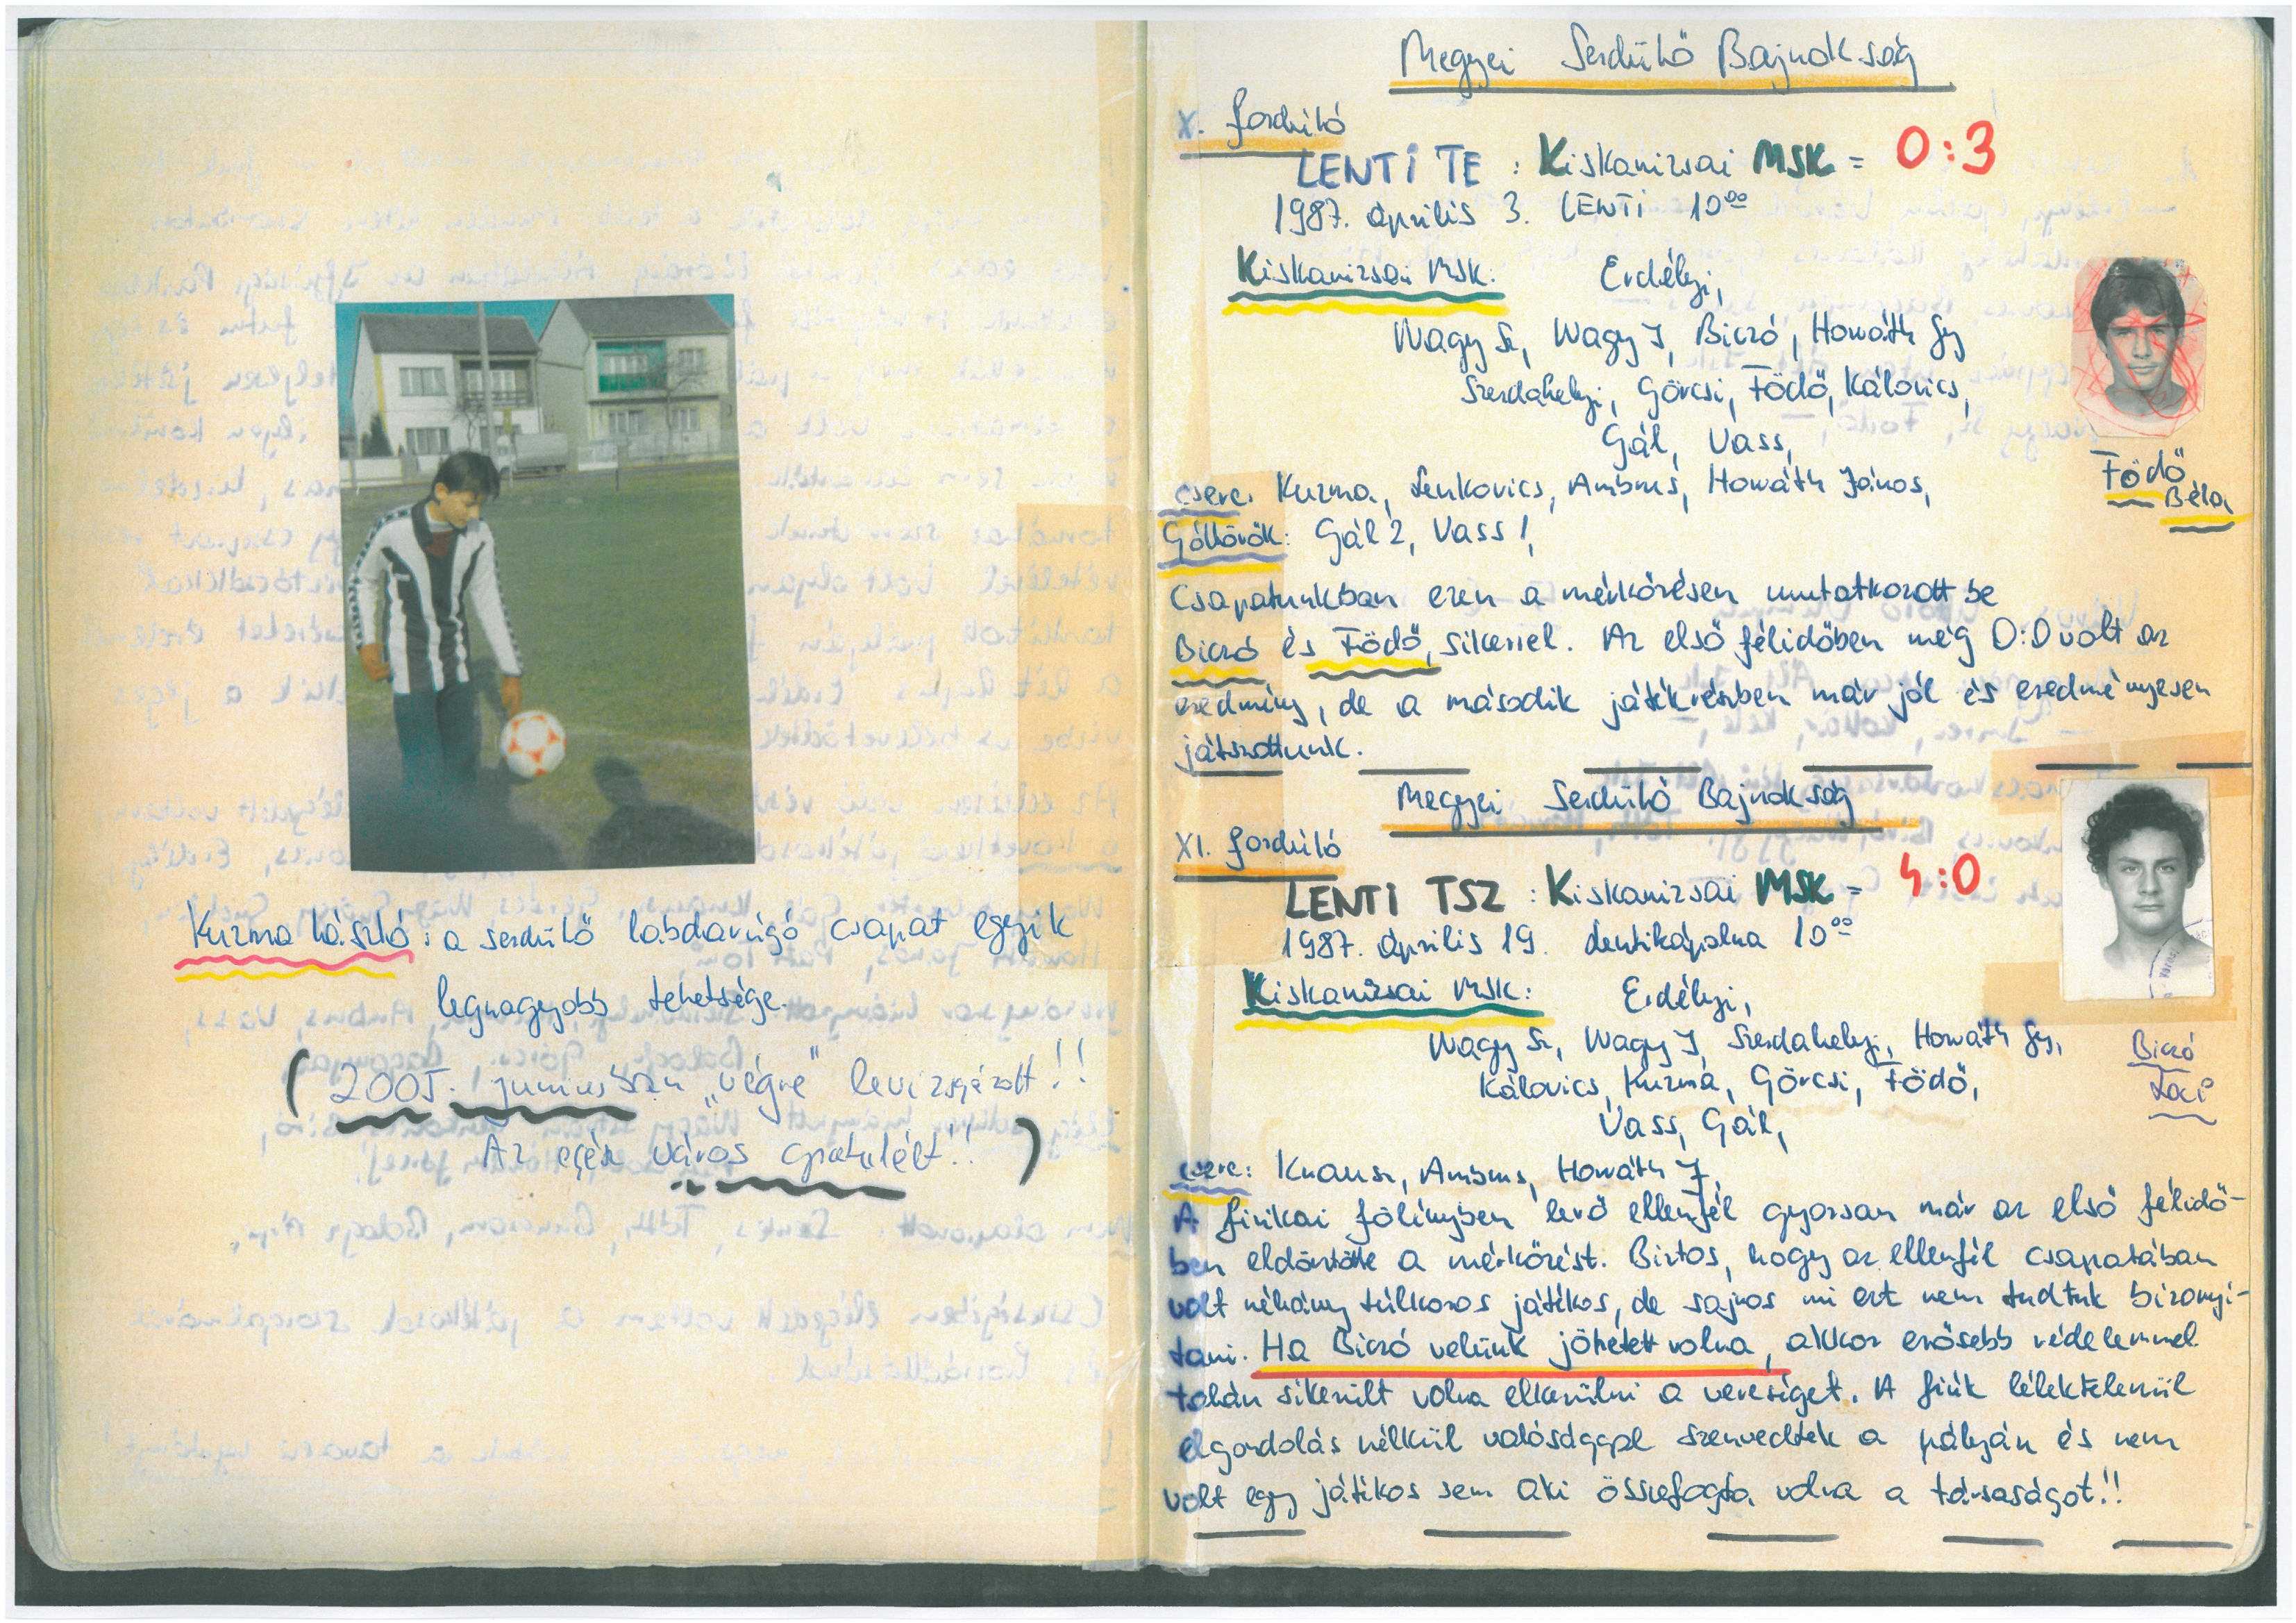 Kuzma László: a serdülő labdarúgó csapat egyik
legnagyobb tehetsége.
(2005. juniusban „végre" levizsgázott!!
Az egész város gratulált!!)
Megyei Serdülő Bajnokság
X. forduló
LENTI TE : Kiskanizsai MSK = 0:3
1987. április 3. LENTI 10⁰⁰
Kiskanizsai MSK: Erdélyi,
Nagy Sz, Nagy J, Biczó, Horváth Gy
Szerdahelyi, Görcsi, Födő, Kálovics,
Gál, Vass,
csere: Kuzma, Senkovics, Ambrus, Horváth János,
Góllövők: Gál 2, Vass 1,
Födő
Béla
Csapatunkban ezen a mérkőzésen mutatkozott be
Biczó és Födő, sikerrel. Az első félidőben még 0:0 volt az
eredmény, de a második játékrészben már jól és eredményesen
játszottunk.
Megyei Serdülő Bajnokság
XI. forduló
LENTI TSZ : Kiskanizsai MSK = 4:0
1987. április 19. Lentikápolna 10⁰⁰
Kiskanizsai MSK: Erdélyi,
Nagy Sz, Nagy J, Szerdahelyi, Horváth Gy,
Kálovics, Kuzma, Görcsi, Födő,
Vass, Gál,
Biczó
Laci
csere: Knausz, Ambrus, Horváth J,
A fizikai fölényben levő ellenfél gyorsan már az első félidő-
ben eldöntötte a mérkőzést. Biztos, hogy az ellenfél csapatában
volt néhány túlkoros játékos, de sajnos mi ezt nem tudtuk bizonyí-
tani. Ha Biczó velünk jöhetett volna, akkor erősebb védelemmel
talán sikerült volna elkerülni a vereséget. A fiúk lélektelenül
elgondolás nélkül valósággal szenvedtek a pályán és nem
volt egy játékos sem aki összefogta volna a társaságot!!